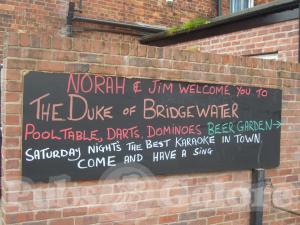 NORAH & JIM WELCOME YOU TO
THE DUKE OF BRIDGEWATER
POOL TABLE, DARTS, DOMINOES BEER GARDEN →
SATURDAY NIGHTS THE BEST KARAOKE IN TOWN
COME AND HAVE A SING